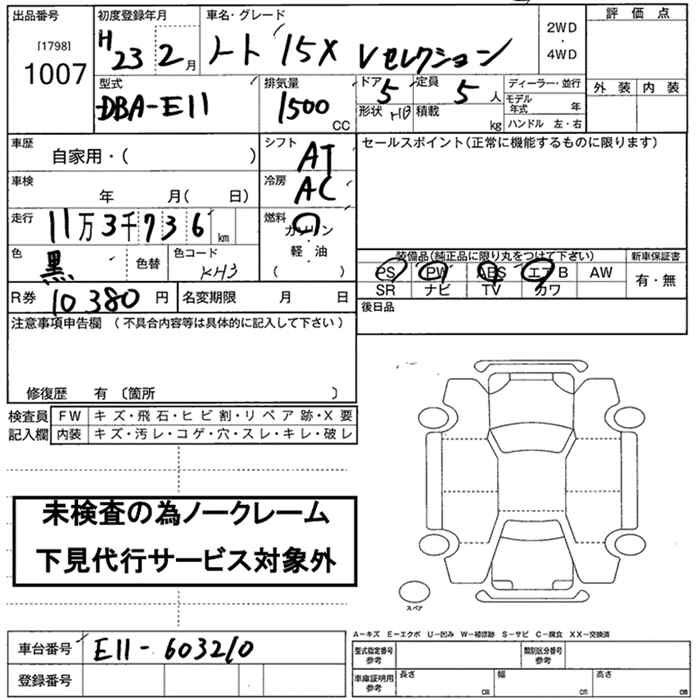 出品番号 初度登録年月 車名・グレード 2WD・4WD 評価点
[1798]
1007
H23 2月 ノート 15X Vセレクション
外装 内装
型式 排気量 ドア 定員 ディーラー・並行
DBA-E11 1500 CC 5 5人 モデル年式 年
形状 HB 積載 kg ハンドル 左・右
車歴 シフト セールスポイント(正常に機能するものに限ります)
自家用・( ) AT
車検 冷房
年 月( 日) AC
走行 燃料
11万3千736km ガソリン
軽・油
( )
色 色替 色コード
黒 KH3
装備品(純正品に限り丸をつけて下さい) 新車保証書
PS PW ABS エアB AW 有・無
SR ナビ TV カワ
R券 10380円 名変期限 月 日 後日品
注意事項申告欄 (不具合内容等は具体的に記入して下さい)
修復歴 有 (箇所 )
検査員 FW キズ・飛石・ヒビ割・リペア跡・X要
記入欄 内装 キズ・汚レ・コゲ・穴・スレ・キレ・破レ
未検査の為ノークレーム
下見代行サービス対象外
スペア
A−キズ E−エクボ U−凹み W−補修跡 S−サビ C−腐食 XX−交換済
車台番号 E11-603210
型式指定番号 参考 類別区分番号 参考
登録番号
車庫証明用 参考 長さ cm 幅 cm 高さ cm